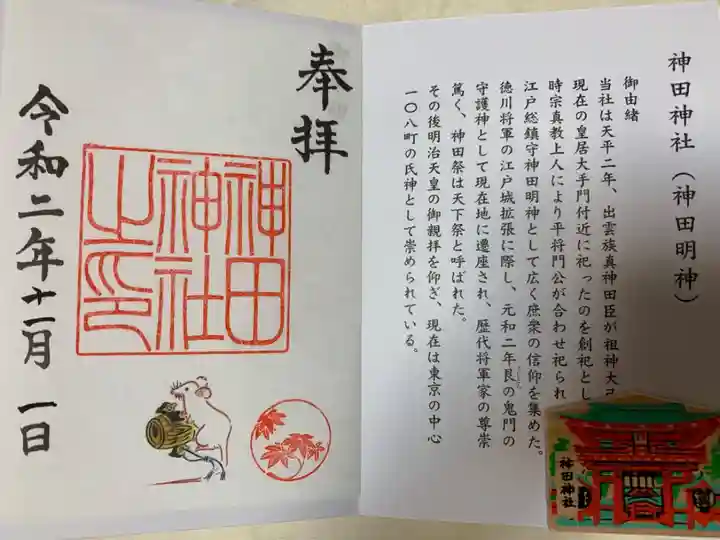 神田神社(神田明神)
御由緒
当社は天平二年、出雲族真神田臣が祖神大己
現在の皇居大手門付近に祀ったのを創祀とし
時宗真教上人により平将門公が合わせ祀られ
江戸総鎮守神田明神として広く庶衆の信仰を集めた。
徳川将軍の江戸城拡張に際し、元和二年艮の鬼門の
守護神として現在地に遷座され、歴代将軍家の尊崇
篤く、神田祭は天下祭と呼ばれた。
その後明治天皇の御親拝を仰ぎ、現在は東京の中心
一〇八町の氏神として崇められている。
神田神社
奉拝
神田
神社
之印
令和二年十一月一日